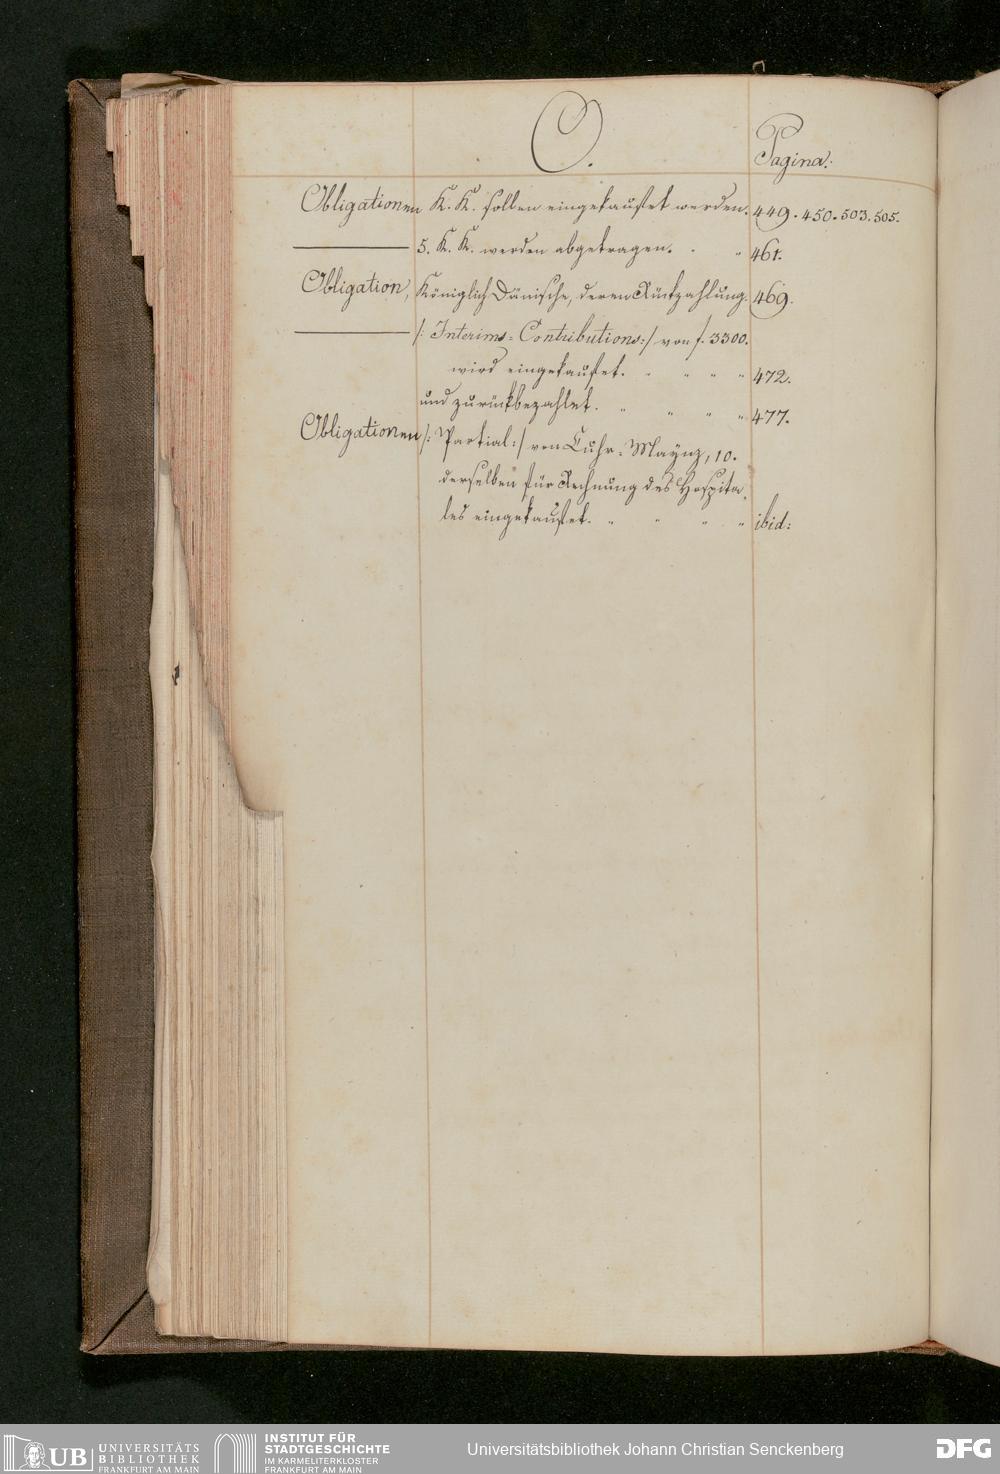 O.
Pagina:
Obligationen K. K. sollen eingekauffet werden. 449. 450. 503. 505.
——— 5. K. K. werden abgetragen. 461.
Obligation, Königlich Dänische, deren Rückzahlung. 469.
——— /: Interims-Contributions:/ von f. 3300.
wird eingekauffet. 472.
und zurückbezahlet. 477.
Obligationen /: Partial:/ von Cuhr-Maynz, 10.
derselben für Rechnung des Hospita-
les eingekauffet. ibid:
UB UNIVERSITÄTS
BIBLIOTHEK
FRANKFURT AM MAIN
INSTITUT FÜR
STADTGESCHICHTE
IM KARMELITERKLOSTER
FRANKFURT AM MAIN
Universitätsbibliothek Johann Christian Senckenberg
DFG